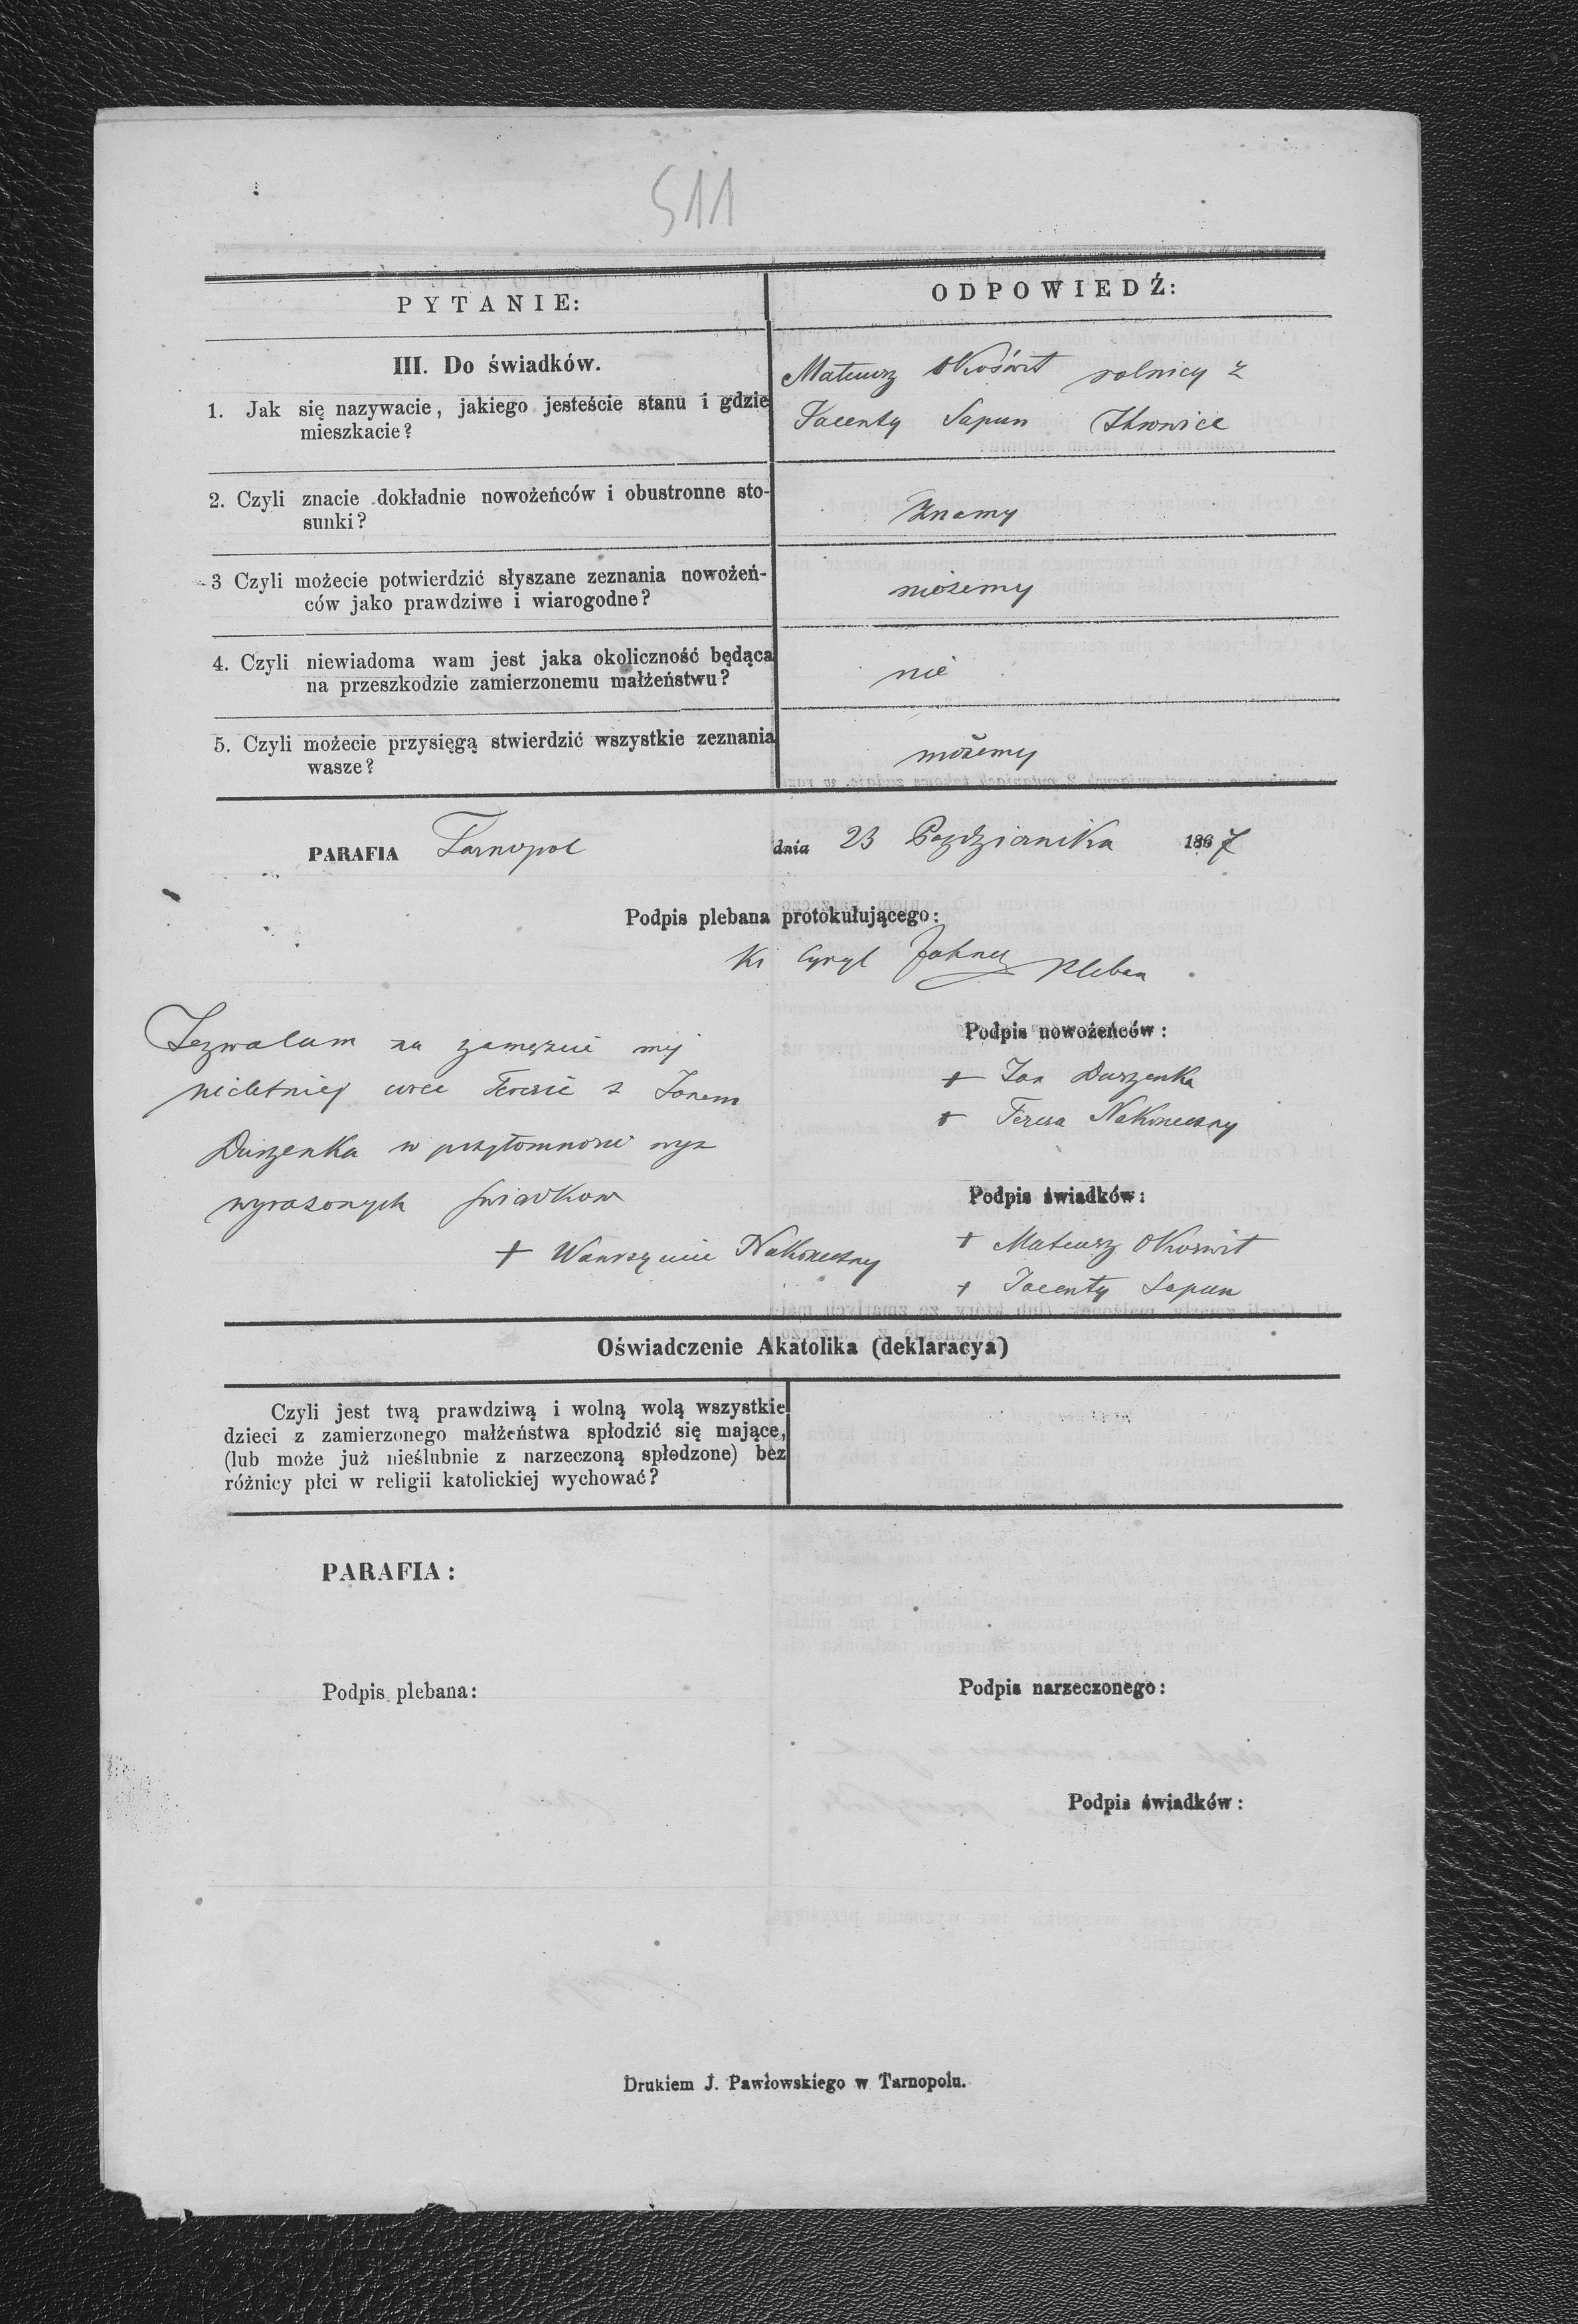 511
PYTANIE:
ODPOWIEDŹ:
III. Do świadków.
1. Jak się nazywacie, jakiego jesteście stanu i gdzie
mieszkacie?
Mateusz Okoświt rolnicy z
Jacenty Sapun
2. Czyli znacie dokładnie nowożeńców i obustronne sto-
sunki?
Znamy
3 Czyli możecie potwierdzić słyszane zeznania nowożeń-
ców jako prawdziwe i wiarogodne?
możemy
4. Czyli niewiadoma wam jest jaka okoliczność będąca
na przeszkodzie zamierzonemu małżeństwu?
nie
5. Czyli możecie przysięgą stwierdzić wszystkie zeznania
wasze?
możemy
PARAFIA Tarnopol dnia 23 Pazdziernika 1867
Podpis plebana protokułującego:
Cyryl pleban
Zezwalam na zamęzcie mej
nieletniej corce Teresie z Janem
Duszenka w przytomnosci wyz
wyrazonych swiadkow
+ Wawrzyniec Nakoneczny
Podpis nowożeńców:
+ Jan Duszenka
+ Teresa Nakoneczny
Podpis świadków:
+ Mateusz Okoswit
+ Jacenty Sapun
Oświadczenie Akatolika (deklaracya)
Czyli jest twą prawdziwą i wolną wolą wszystkie
dzieci z zamierzonego małżeństwa spłodzić się mające,
(lub może już nieślubnie z narzeczoną spłodzone) bez
różnicy płci w religii katolickiej wychować?
PARAFIA:
Podpis plebana:
Podpis narzeczonego:
Podpis świadków:
Drukiem J. Pawłowskiego w Tarnopolu.